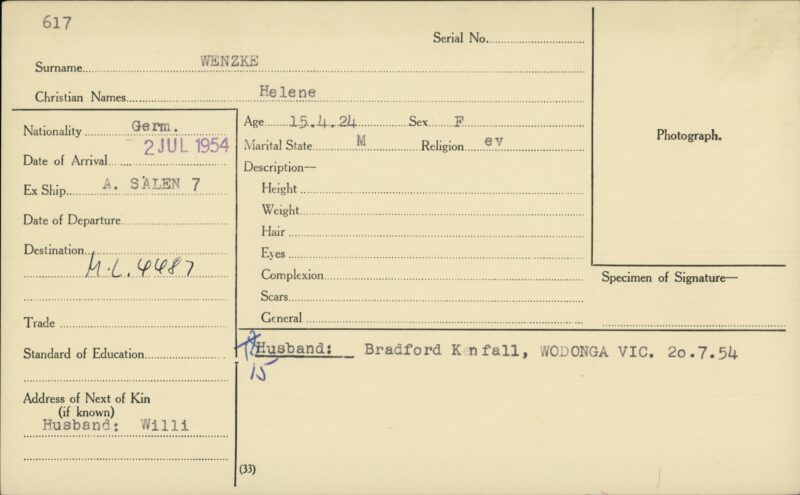 617
Serial No.
Surname WENZKE
Christian Names Helene
Nationality Germ.
Date of Arrival 2 JUL 1954
Ex Ship A. SALEN 7
Date of Departure
Destination
M.L. 4487
Trade
Standard of Education
Address of Next of Kin
(if known)
Husband: Willi
Age 15.4.24 Sex F
Marital State M Religion ev
Description—
Height
Weight
Hair
Eyes
Complexion
Scars
General
Photograph.
Specimen of Signature—
Husband: Bradford Kenfall, WODONGA VIC. 20.7.54
15
(33)